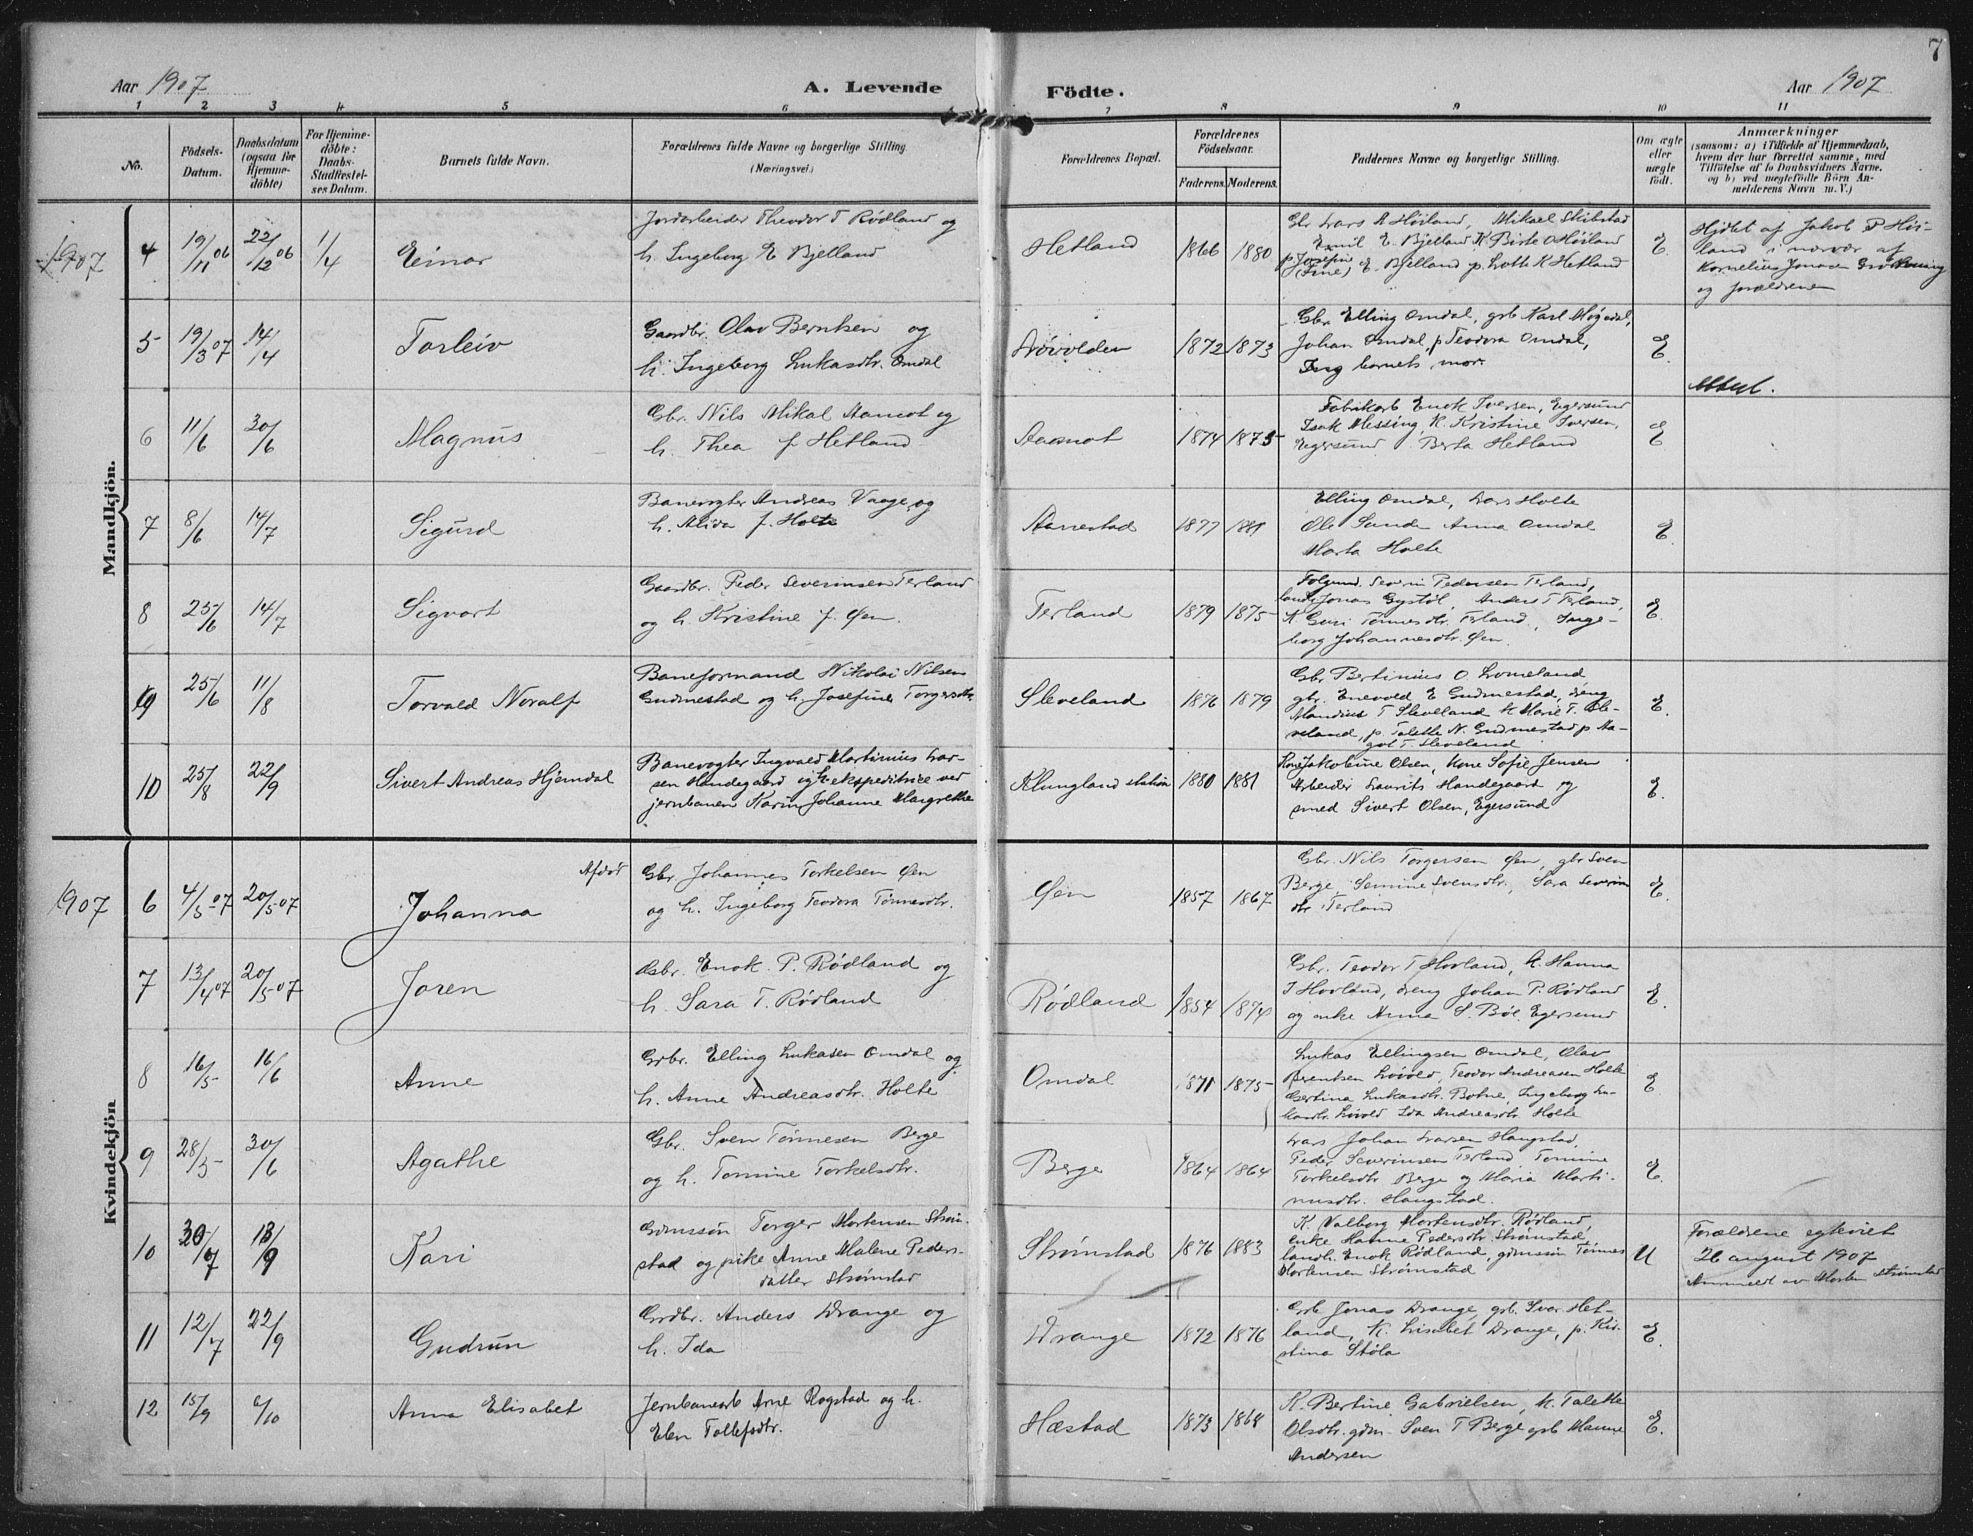 7
Aar 1907
A. Levende
Födte.
Aar 1907
1 2 3 4 5 6 7 8 9 10 11
No.
Födsels-
Datum.
Daabsdatum
(ogsaa for
Hjemme-
döbte)
For Hjemme-
döbte:
Daabs-
Stadfæstel-
ses Datum.
Barnets fulde Navn.
Forældrenes fulde Navne og borgerlige Stilling
(Næringsvei.)
Forældrenes Bopæl.
Forældrenes
Födselsaar.
Faderens. Moderens.
Faddernes Navne og borgerlige Stilling.
Om ægte
eller
uægte
födt.
Anmærkninger
(saasom: a) i Tilfælde af Hjemmedaab,
hvem der har forrettet samme, med
Tilföielse af to Daabsvidners Navne,
og b) ved uægtefödte Börn An-
melderens Navn m. V.)
Mandkjön.
1907
4 19/11 06 22/12 06 1/4
Einar
Jordarbeider Theodor T Rödland og
h. Ingeborg E Bjelland
Hetland
1866 1880
Gbr Lars A Höiland, Mikael Skibstad
Emil E. Bjelland K Birte O Höiland
p Josefine
(Fine) E. Bjelland p. Lotte K Hetland
E.
Hjdbt af Jakob P Höi-
land i nærvær af
Kornelius Jonasen
og forældrene
5 19/3 07 14/4
Torleiv
Gaardbr. Olav Bernksen og
h. Ingeborg Lukasdtr. Omdal
1872 1873
Gbr Elling Omdal, grb Karl Møgedal,
Johan Omdal, p Teodora Omdal,
barnets mor
E.
6 11/6 30/6
Magnus
Gbr. Nils Mikal Aamot og
h. Thea f Hetland
Aamot
1874 1875
Fabrikarb Enok Iversen, Egersund
Isak Messing, K. Kristine Iversen,
Egersund. Berta Hetland
E
7 8/6 14/7
Sigurd
Banevogter Andreas Vaage, og
h. Alida f. Holte
1877 1881
Elling Omdal, Lars Holte
Ole Sande Anna Omdal
Marta Holte
E.
8 25/6 14/7
Sigvart
Gaardbr. Peder Severinsen Terland
og h. Kristine f. Øen.
Terland
1879 1875
Folgmd. Severin Pedersen Terland,
Jonas Gystøl, Anders T Terland,
K Guri Tönnesdtr. Terland, Inge-
borg Johannesdtr. Øen.
E.
9 25/6 11/8
Torvald Noralf
Baneformand Nikolai Nilsen
Gudmestad og h. Josefine Torgersdtr.
Sleveland
1876 1879
Gbr. Bertinius O. Lomeland
gbr. Enevold E Gudmestad, dreng
Mandius T Sleveland k Marie T. Sle-
veland, p. Talette N. Gudmestad p Aa-
got T Sleveland
E.
10 25/8 22/9
Sivert Andreas Hjemdal
Banevogter Ingvald Martinius Lar-
sen Handegaard og h. ekspeditrice ved
jernbanen Karin Johanne Margrethe
Klungland station
1880 1881
Kone Jakobine Olsen, Kone Sofie Jensen
Arbeider Laurits Handegaard og
smed Sivert Olsen, Egersund
E.
Kvindekjön
1907
6 4/5 07 20/5 07
Afdöd
Johanna
Gbr. Johannes Torkelsen Øen
og h. Ingeborg Teodora Tönnesdtr.
Øen
1857 1867
Gbr. Nils Torgersen Øen, gbr Sven
Berge, Semine Svensdtr., Sara Severin
dtr Terland
E.
7 13/4 07 20/5 07
Joren
Gbr. Enok P. Rödland og
h. Sara T. Rödland
Rödland
1854 1874
Gbr. Teodor T Hovland, K. Hanna
T Hovland, dreng Johan P. Rödland
og enke Anna S. Böe, Egersund
E.
8 16/5 16/6
Anne
Grbr. Elling Lukasen Omdal og
h. Anne Andreasdtr. Holte
Omdal
1871 1875
Lukas Ellingsen Omdal, Olav
Berentsen Lövold, Teodor Andreasen Holte
Gertina Lukasdtr. Botne, Ingeborg Lu-
kasdtr. Lövold Ida Andreasdtr. Holte
E
9 28/5 30/6
Agathe
Gbr. Sven Tönnesen Berge
og h. Tomine Torkelsdtr.
Berge
1864 1864
Lars Johan Larsen Haugstad,
Peder Severinsen Terland, Tomine
Torkelsdtr Berge og Maria Marti-
nusdtr. Haugstad.
E.
10 30/7 13/9
Kari
Gdmssön Torger Mortensen Ström-
stad og pike Anne Malene Peders-
datter Strömstad
Strömstad
1876 1883
K Valborg Mortensdtr. Rödland,
enke Hanne Pedersdtr Strömstad,
landh. Enok Rödland, gdmssön Tönnes
Mortensen Strömstad
U
Forældrene egteviet
26 august 1907
Anmeldt av Morten Strömstad
11 12/7 22/9
Gudrun
Grdbr. Anders Drange og
h. Ida
Drange
1872 1876
Grb Jonas Drange, grb. Ivar Het-
land, K. Lisabet Drange, p. Kri-
stina Stöla
E
12 15/9 6/10
Anna Elisabet
Jernbanearb Arne Rogstad og h.
Elen Tollefsdtr.
Hæstad
1873 1868
K. Bertine Gabrielsen, K. Talette
Olsdtr. gdm. Sven T Berge grb Hanne
Andersen
E.